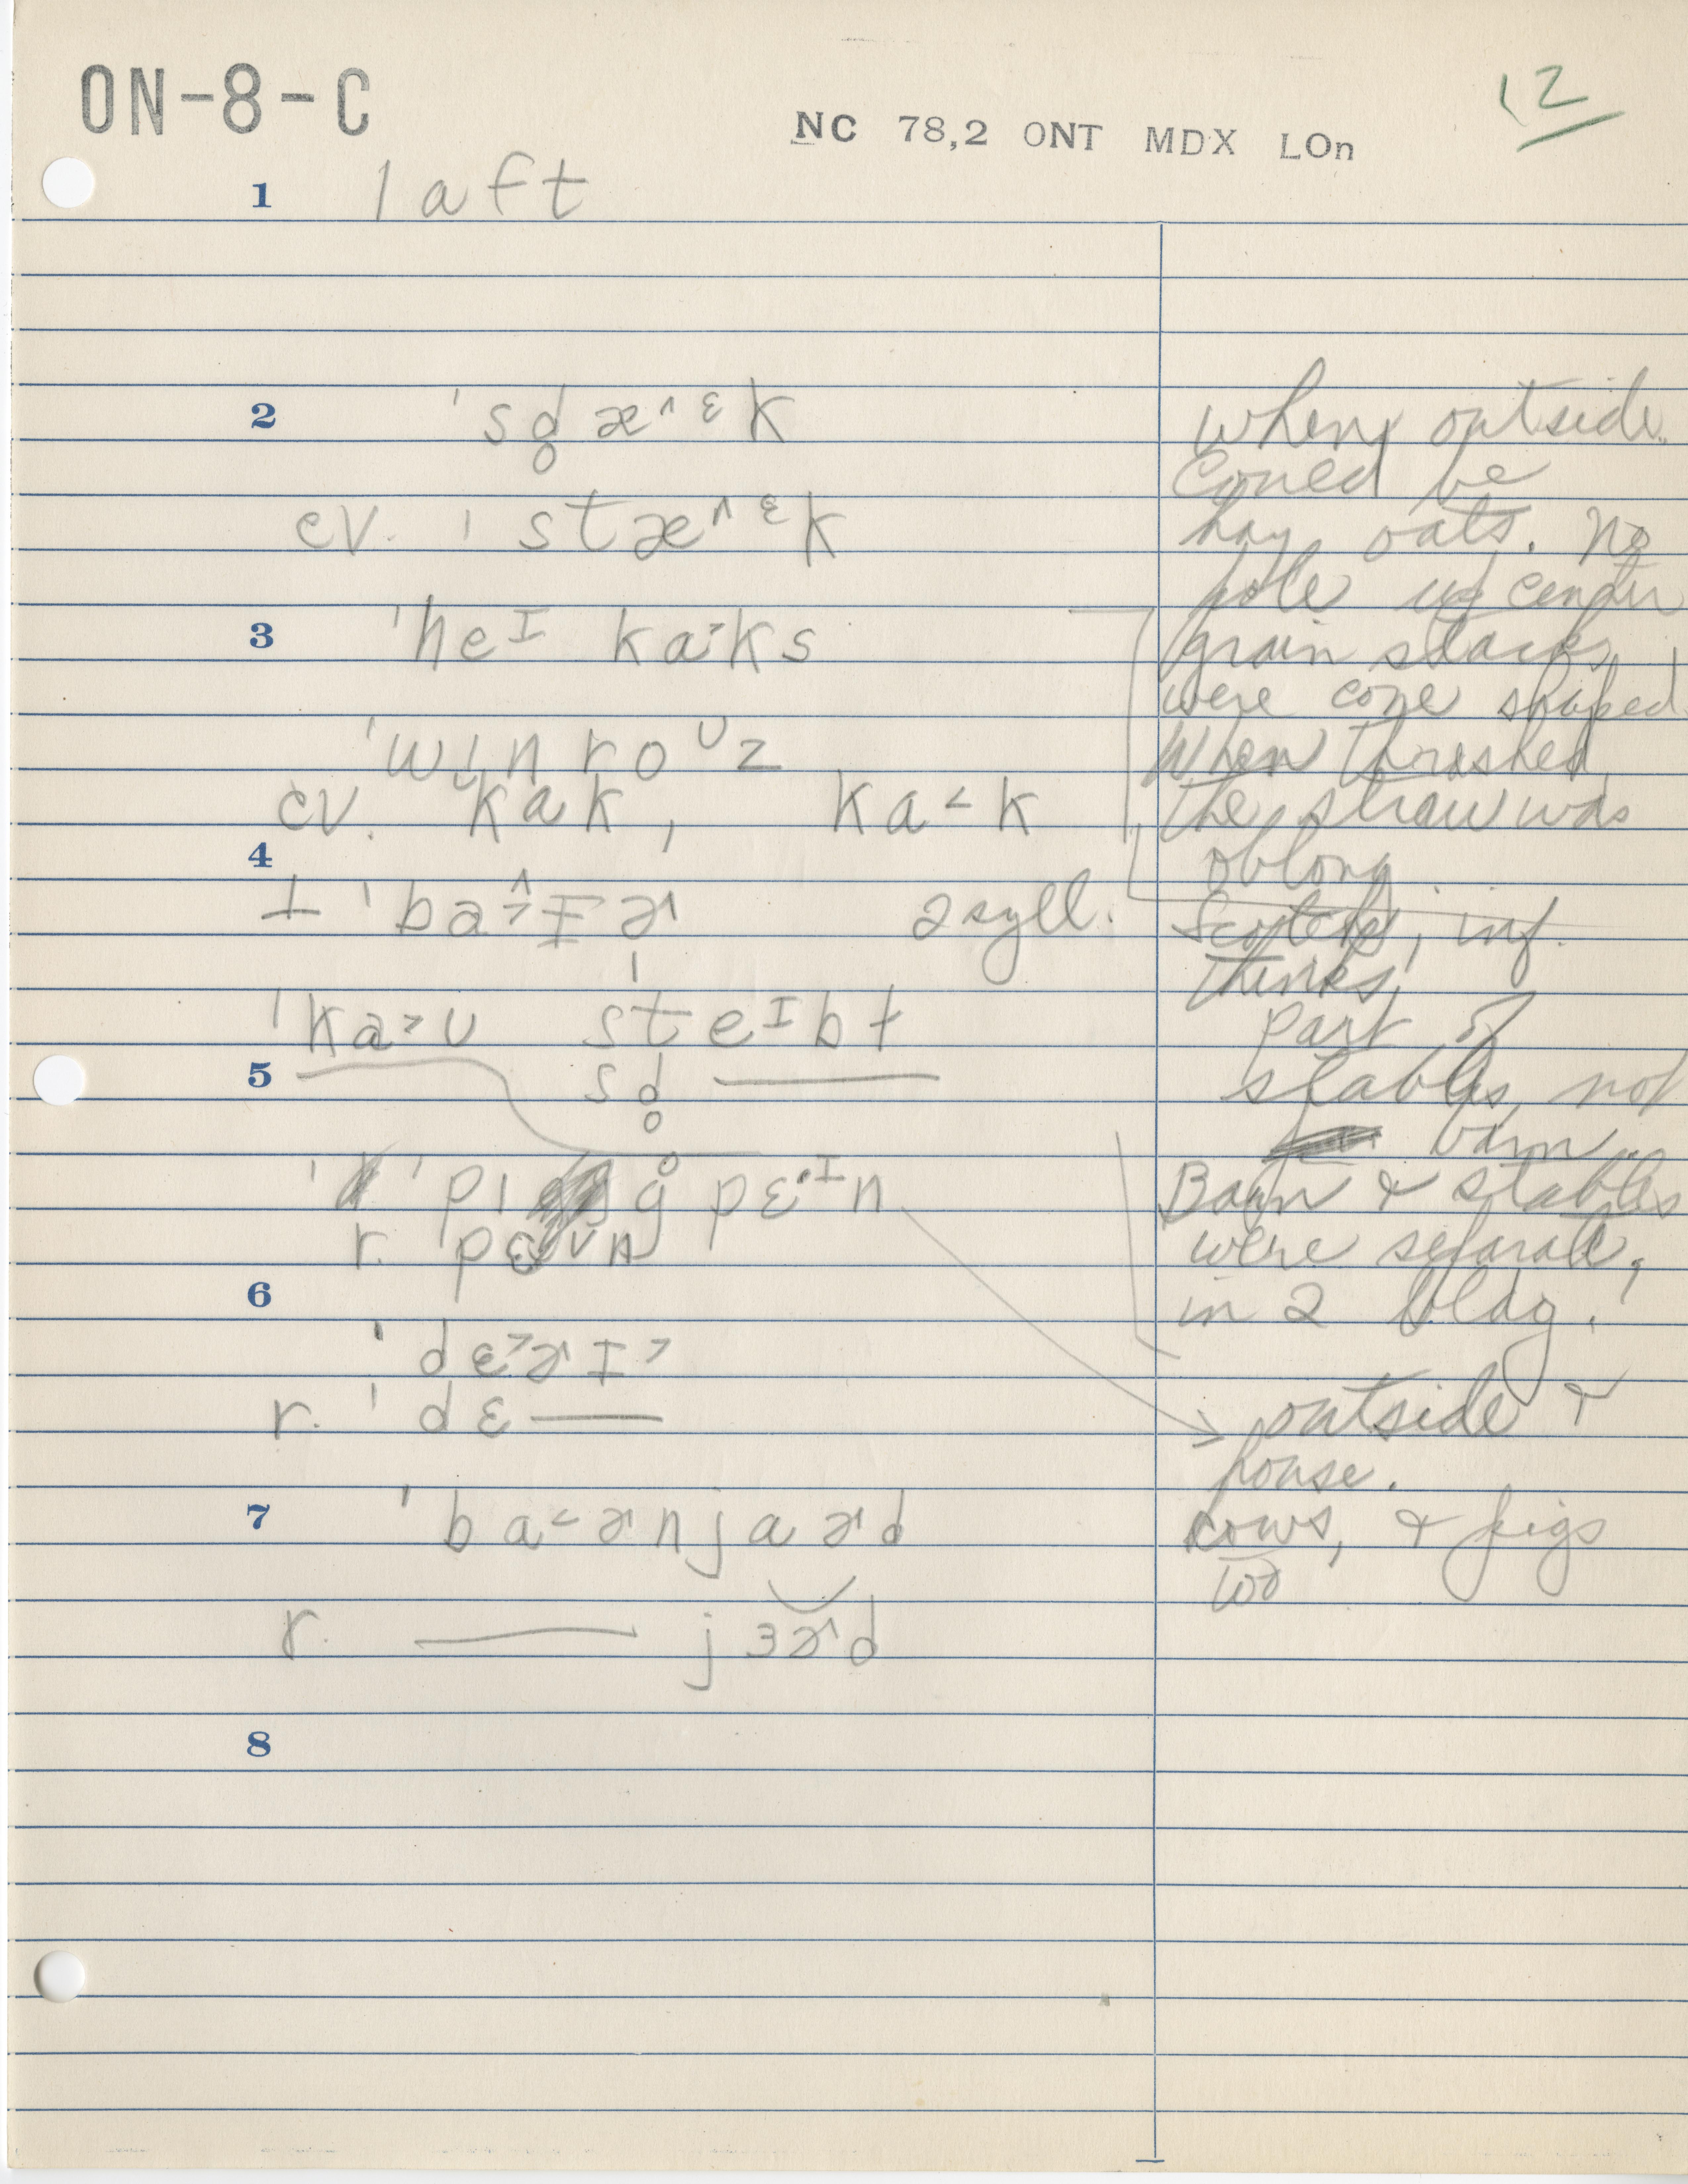 ON-8-C
12
NC 78,2 ONT MDX LOn
1 laft
2 ˈsd̥æ^ɛk
when outside.
Could be
cv. ˈstæ^ɛk
hay oats. No
pole in center
3 ˈheɪ ka˃ks
grain stacks
were cone shaped.
ˈwɪnroᴜz
When threshed
cv. kak, ka˂k
the straw was
4
oblong.
ˈba ɪɚ 2 syll.
Scotch, inf.
thinks
ˈka˃ᴜ steɪbɫ
part of
5 sd̥
stables, not
barn.
ˈpɪg̊ pɛ·ɪn
Barn & stables
r. pɛ
were separate,
6
in 2 bldg.
ˈdɛ˃ɚɪ˃
r. ˈdɛ
outside &
house.
7 ˈba˂ɚnjaɚd
cows, & pigs
too
r. jɜɚd
8